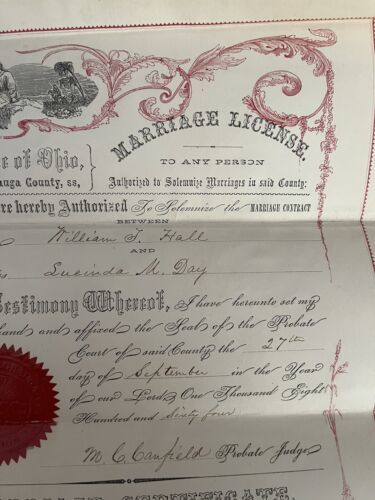 MARRIAGE LICENSE.
e of Ohio, }
TO ANY PERSON
uga County, ss,
Authorized to Solemnize Marriages in said County:
re hereby Authorized To Solemnize the MARRIAGE CONTRACT
BETWEEN
William J. Hall
AND
s Lucinda M. Day
Testimony Whereof, I have hereunto set my
and and affixed the Seal of the Probate
Court of said County the 27th
day of September in the Year
of our Lord One Thousand Eight
Hundred and Sixty four
M. C. Canfield Probate Judge
CERTIFICATE